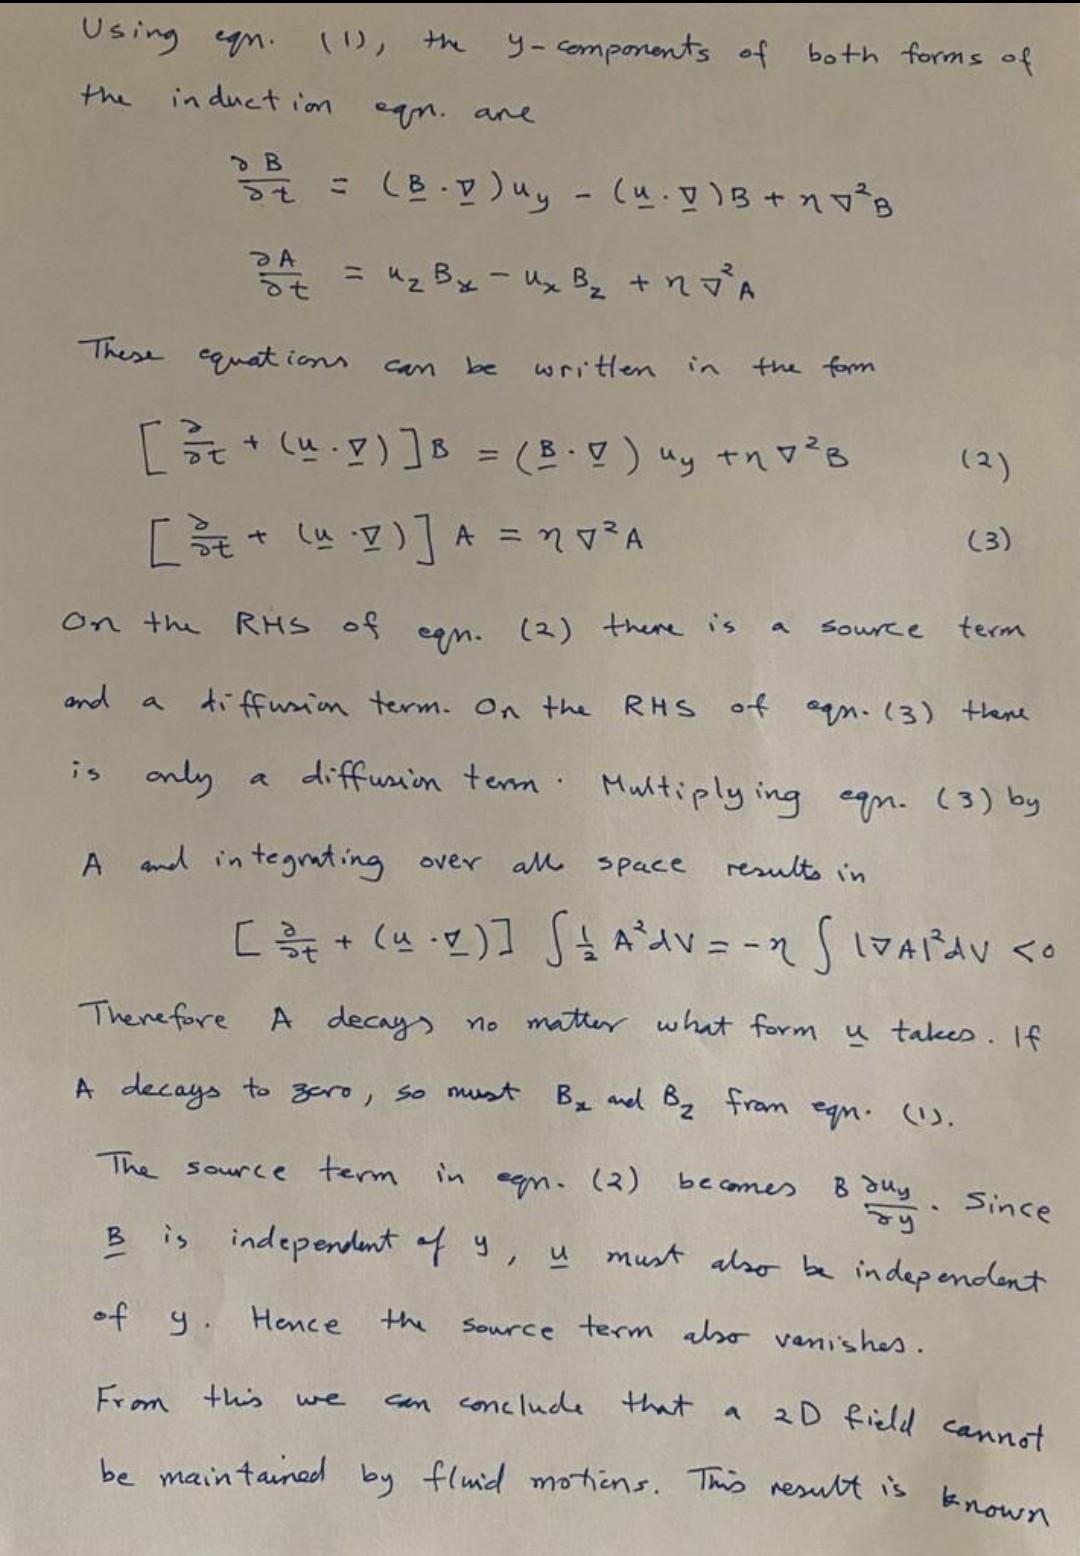 Using eqn. (1), the y-components of both forms of
the induction eqn. are
∂B/∂t = (B̲ · ∇̲)u_y - (u̲ · ∇̲)B + η∇²B
∂A/∂t = u_z B_x - u_x B_z + η∇²A
These equations can be written in the form
[∂/∂t + (u̲ · ∇̲)]B = (B̲ · ∇̲) u_y + η∇²B (2)
[∂/∂t + (u̲ · ∇̲)] A = η∇²A (3)
On the RHS of eqn. (2) there is a source term
and a diffusion term. On the RHS of eqn. (3) there
is only a diffusion term. Multiplying eqn. (3) by
A and integrating over all space results in
[∂/∂t + (u̲ · ∇̲)] ∫ ½ A² dV = -η ∫ |∇A|² dV < 0
Therefore A decays no matter what form u̲ takes. If
A decays to zero, so must B_x and B_z from eqn. (1).
The source term in eqn. (2) becomes B ∂u_y/∂y. Since
B̲ is independent of y, u̲ must also be independent
of y. Hence the source term also vanishes.
From this we can conclude that a 2D field cannot
be maintained by fluid motions. This result is known